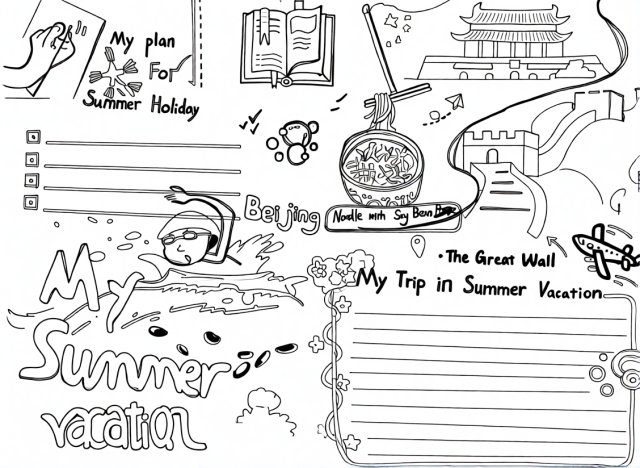 My plan
For
Summer Holiday
Beijing
Noodle with Soy Bean
• The Great Wall
My Trip in Summer Vacation
My
Summer
vacation